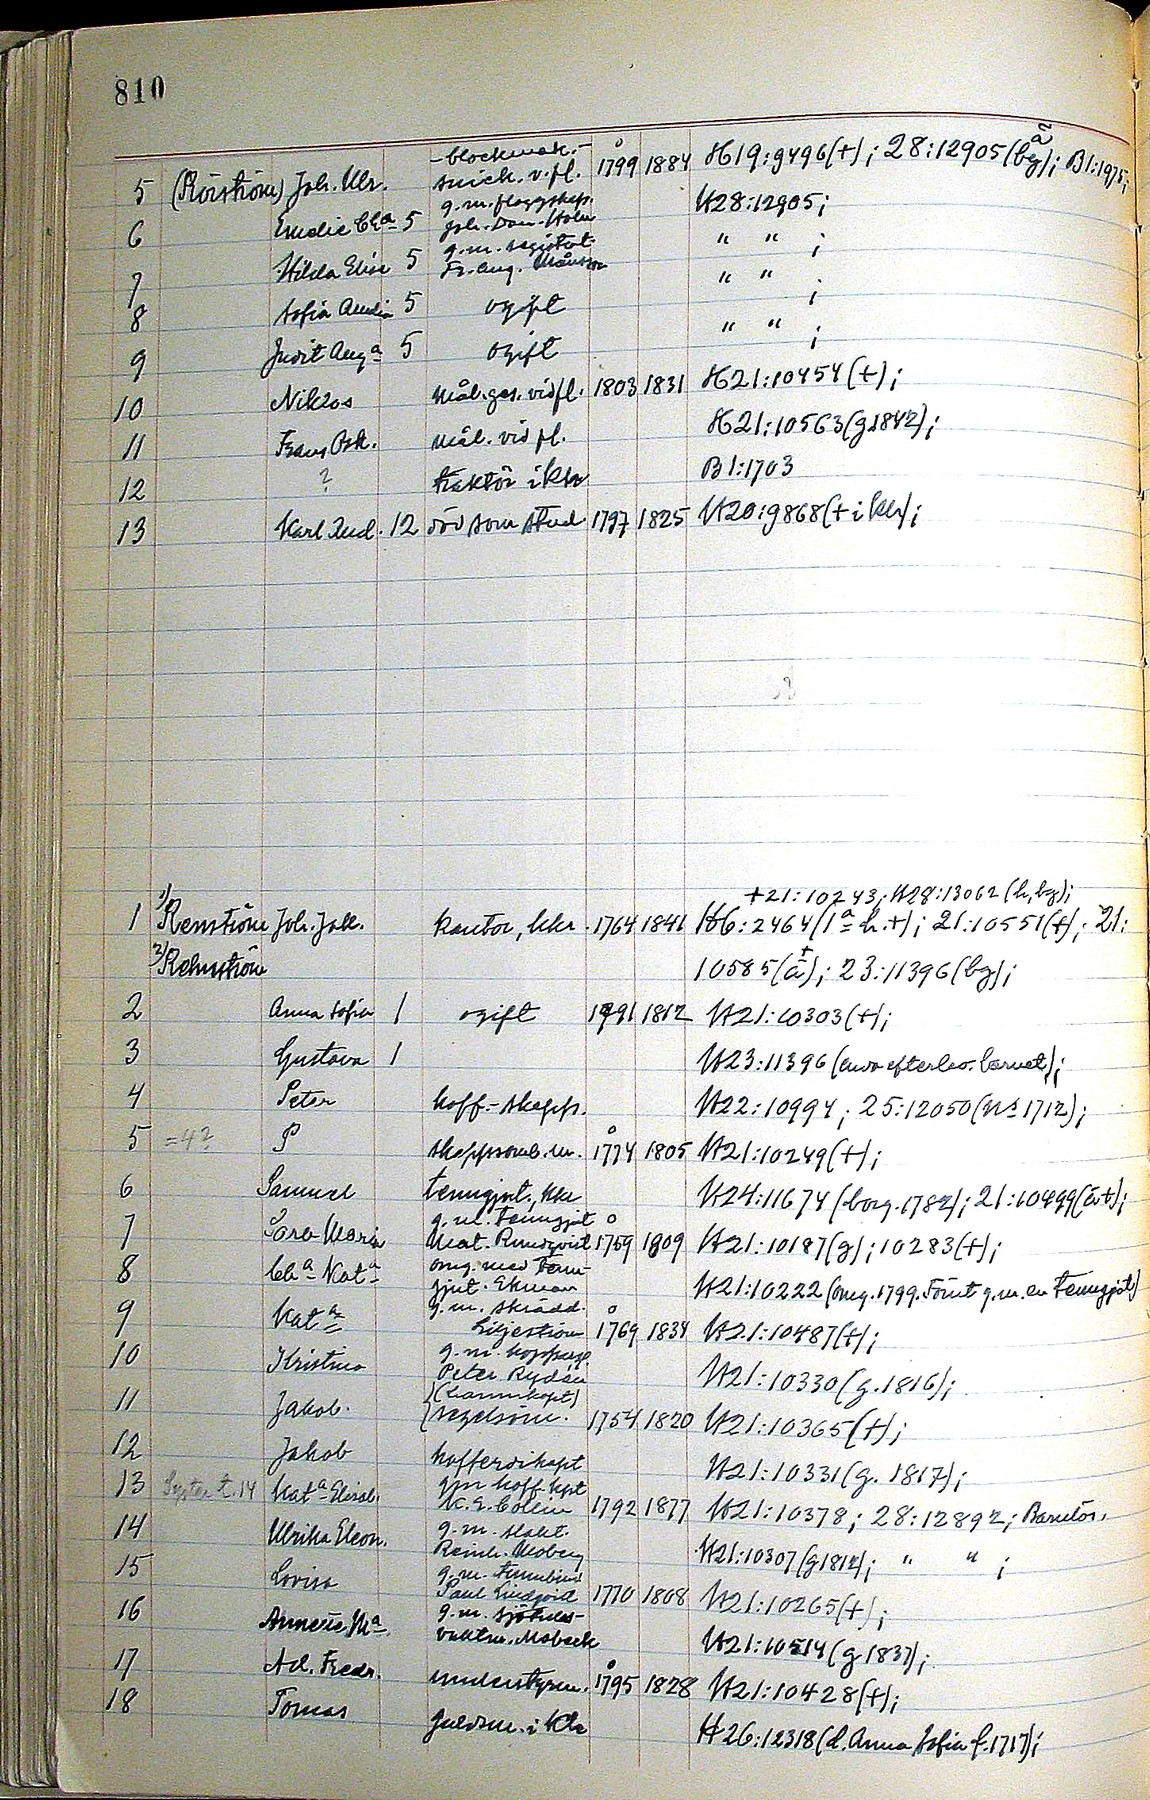 810
5 (Röiström) Joh. Ulr. -blockmak.- snick. v. fl. 1799 1884 H19:9496(+); 28:12905(bg); B1:1975;
6 Emelie Chᵃ 5 g.m. flaggskep. Joh. Dan. Holm H28:12905;
7 Hilda Elise 5 g.m. registrat. Fr. Aug. Månsson " " ;
8 Sofia Amelia 5 ogift " " ;
9 Judit Augᵃ 5 ogift " " ;
10 Niklas mål.ges. vid fl. 1803 1831 H21:10454(+);
11 Frans Osk. mål. vid fl. H21:10563(g 1842);
12 ? traktör i Kkr B1:1703
13 Karl Aud. 12 död som stud. 1797 1825 H20:9868(+ i Kkr);
+21:10243; H28:13062(h, bg);
1 1/ Renström Joh. Jak. kantor, kkr. 1764 1841 H6:2464(1ᵃ h.+); 21:10551(+); 21:
2/ Rehnström 10585(ä+); 23:11396(bg);
2 Anna Sofia 1 ogift 1791 1812 H21:10303(+);
3 Gustava 1 H23:11396(enda efterlev. barnet);
4 Peter koff.-skepp. H22:10994; 25:12050(n§ 1712);
5 =4? P skeppsomb.m. 1774 1805 H21:10249(+);
6 Samuel tenngjut., kkr H24:11674(borg. 1782); 21:10499(ä+);
7 Sara Maria g.m. tenngjut Mat. Rundqvist 1759 1809 H21:10187(g); 10283(+);
8 Chᵃ Katᵃ omg. med tenngjut. Ekman H21:10222(omg. 1799. Förut g.m. en tenngjut)
9 Katᵃ g.m. skrädd. Liljeström 1769 1834 H21:10487(+);
10 Kristina g.m. Peter Rydén H21:10330(g. 1816);
11 Jakob. segelsöm. 1754 1820 H21:10365(+);
12 Jakob kofferdikapt H21:10331(g. 1817);
13 Syster t. 14 Katᵃ Elisab. g m koff. kpt N. E. Collin 1792 1877 H21:10378; 28:12892; Barnlös.
14 Ulrika Eleon. g.m. slakt. Reinh. Moberg H21:10307(g 1812); " " ;
15 Lovisa g.m. Paul Lindqvist 1770 1808 H21:10265(+);
16 Annette Mᵃ g.m. vaktm. Mobeck H21:10514(g 1837);
17 Ad. Fredr. understyrm. 1795 1828 H21:10428(+);
18 Tomas guldsm. i Kkr H26:12318(d. Anna Sofia f. 1717);